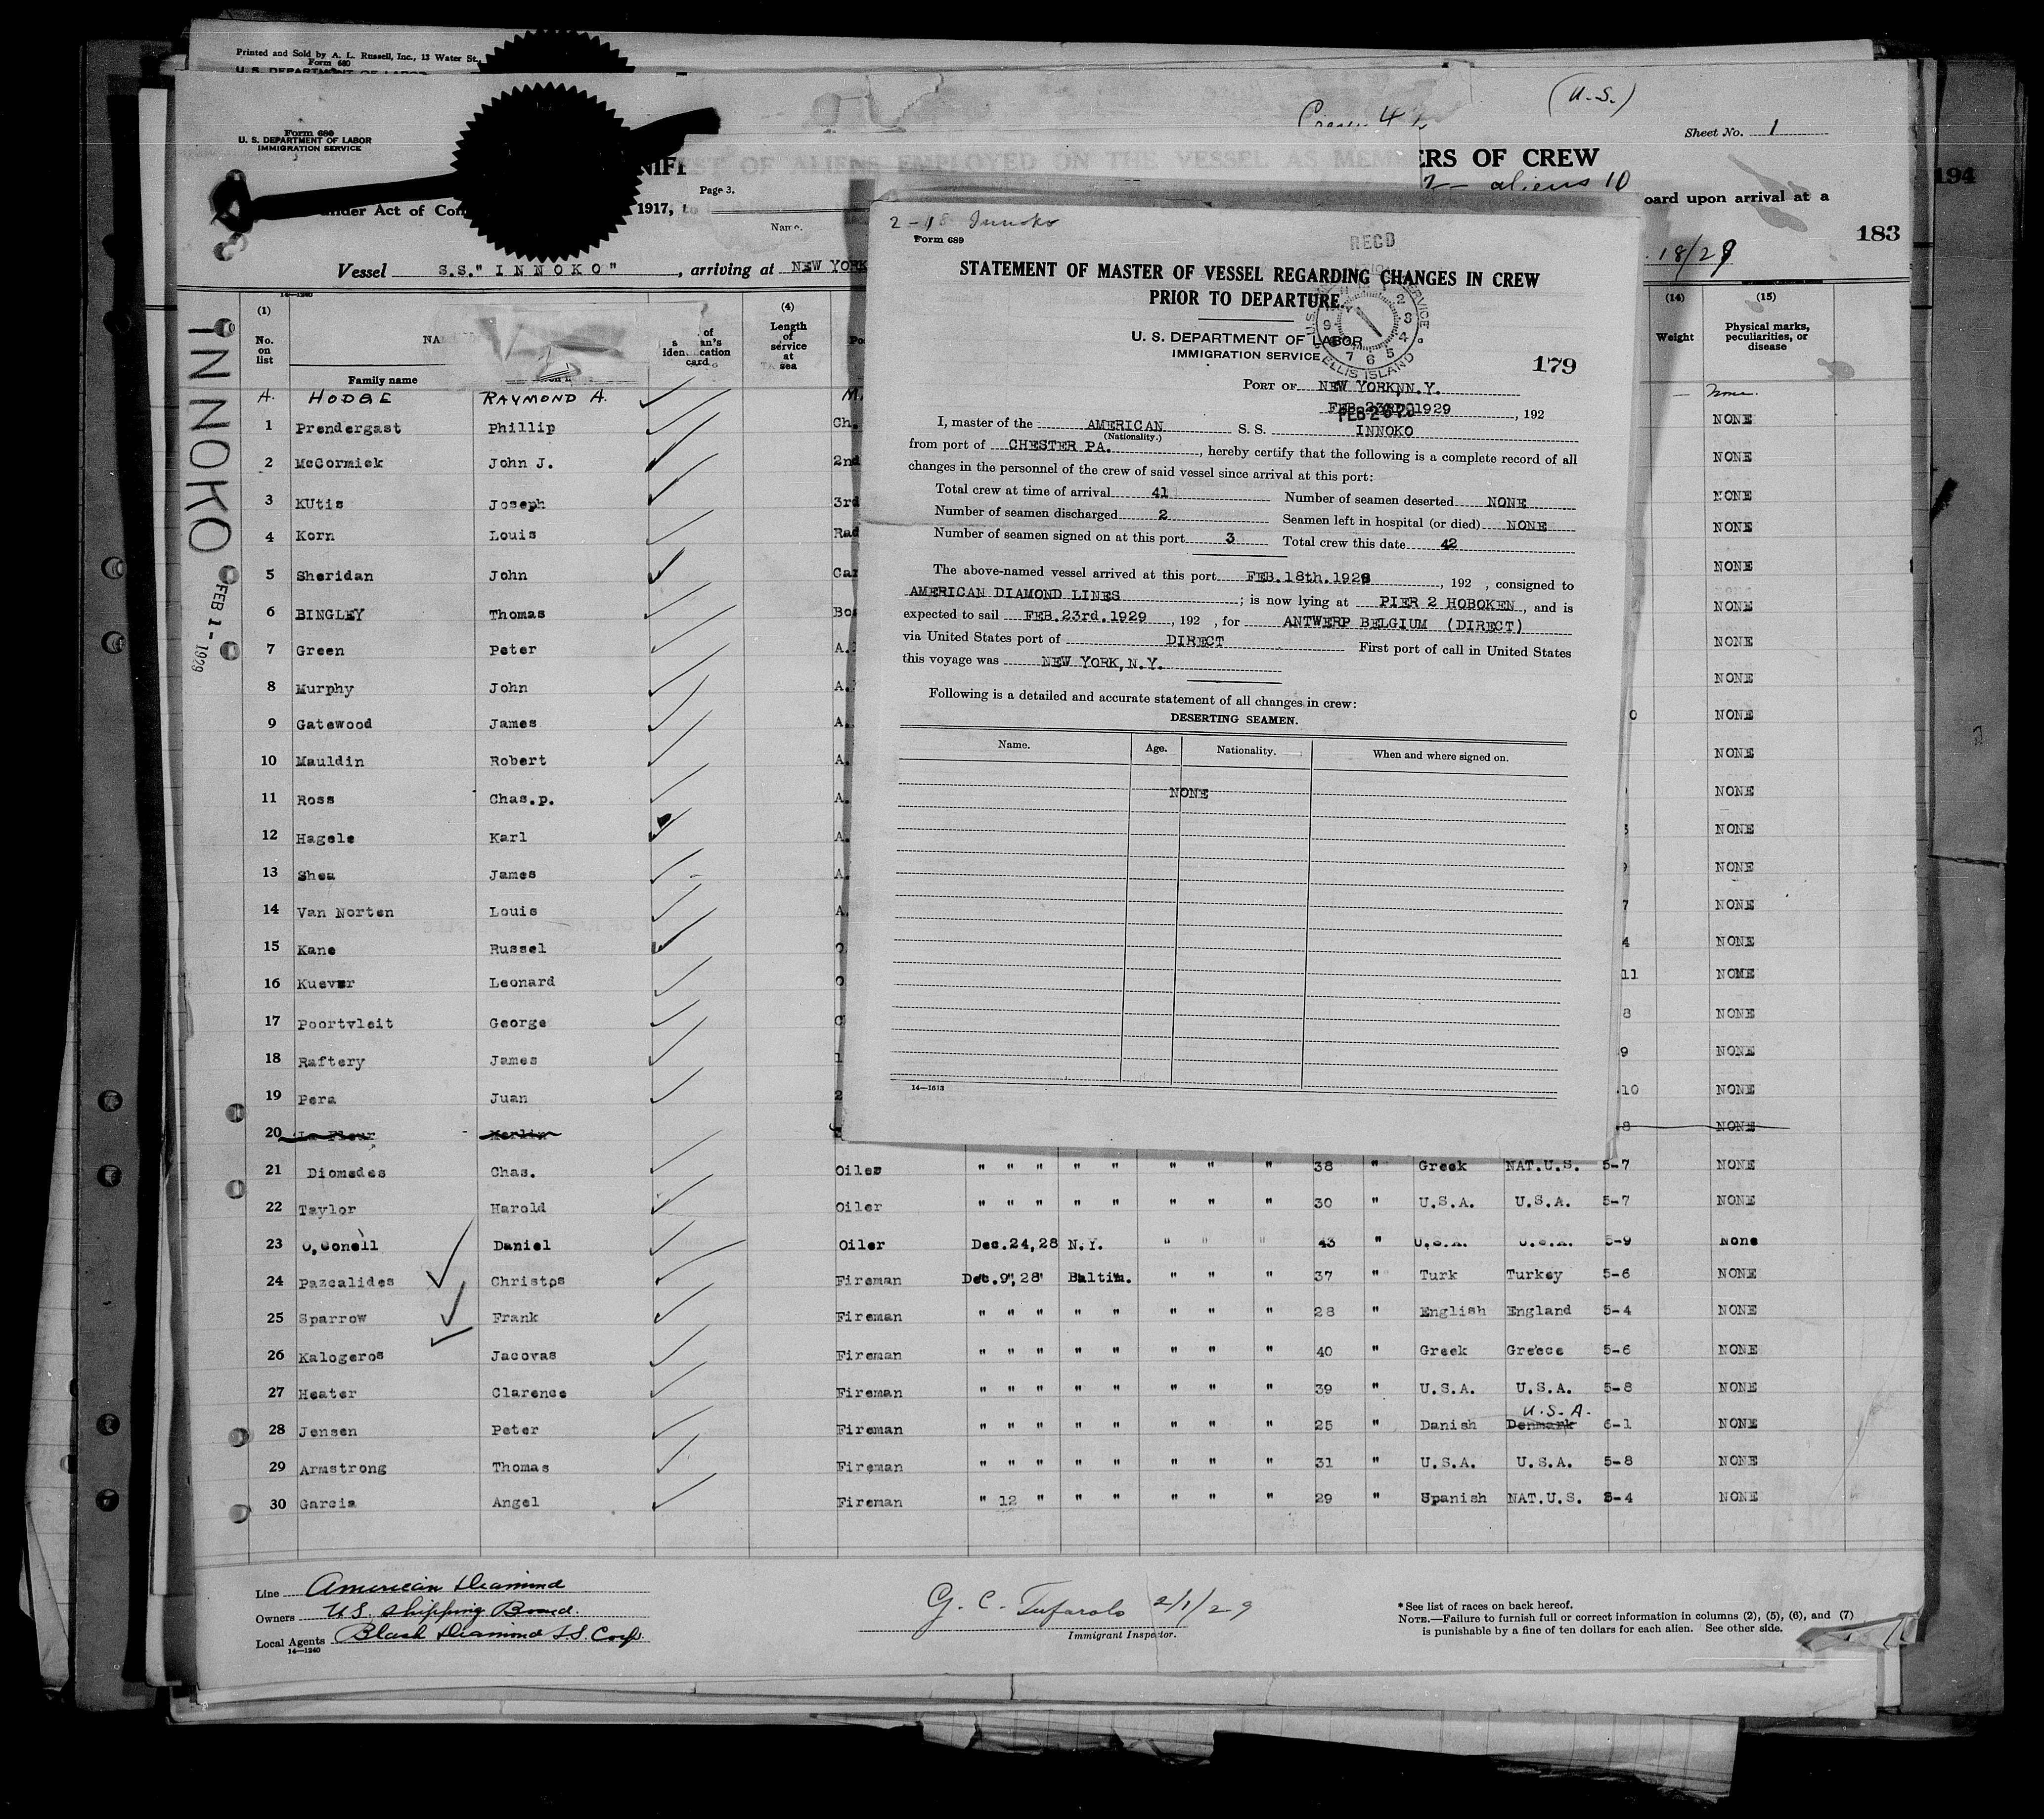 Printed and Sold by A. L. Russell, Inc., 13 Water St.,
Form 680
U. S. DEPARTMENT OF LABOR
(U.S.)
Crew 42
Form 680
U. S. DEPARTMENT OF LABOR
IMMIGRATION SERVICE
Sheet No. 1
EST OF ALIENS EMPLOYED ON THE VESSEL AS MEM
ERS OF CREW
aliens 10
194
Page 3.
under Act of Con 1917, to
oard upon arrival at a
Name.
183
Vessel S.S." I N N O K O " , arriving at NEW YORK
18/29
INNOKO
FEB 1 - 1929
14—1240
(1) (4) (14) (15)
No. on list
Family name
identification card
Length of service at sea
Weight
Physical marks, peculiarities, or disease
A. HODGE RAYMOND A. M. — None
1 Prendergast Phillip Ch. NONE
2 McCormick John J. 2nd NONE
3 KUtis Joseph 3rd NONE
4 Korn Louis Rad NONE
5 Sheridan John Car NONE
6 BINGLEY Thomas Bo NONE
7 Green Peter A. NONE
8 Murphy John A. NONE
9 Gatewood James A. 0 NONE
10 Mauldin Robert A. NONE
11 Ross Chas.p. A. NONE
12 Hagele Karl A. NONE
13 Shea James A. NONE
14 Van Norten Louis A. 7 NONE
15 Kane Russel O 4 NONE
16 Kuever Leonard O 11 NOME
17 Poortvleit George C 8 NONE
18 Raftery James 1 9 NONE
19 Pera Juan 2 10 NONE
20 La Fleur Merlin 8 NONE
21 Diomedes Chas. Oiler " " " " " " " " 38 " Greek NAT.U.S. 5-7 NONE
22 Taylor Harold Oiler " " " " " " " " 30 " U.S.A. U.S.A. 5-7 NONE
23 O,Conell Daniel Oiler Dec.24,28 N.Y. " " " 43 " U.S.A. U.S.A. 5-9 None
24 Pazcalides Christos Fireman Dec.9,28 Baltim. " " " 37 " Turk Turkey 5-6 NONE
25 Sparrow Frank Fireman " " " " " " " " 28 " English England 5-4 NONE
26 Kalogeros Jacovas Fireman " " " " " " " " 40 " Greek Greece 5-6 NONE
27 Heater Clarence Fireman " " " " " " " " 39 " U.S.A. U.S.A. 5-8 NONE
U.S.A.
28 Jensen Peter Fireman " " " " " " " " 25 " Danish Denmark 6-1 NONE
29 Armstrong Thomas Fireman " " " " " " " " 31 " U.S.A. U.S.A. 5-8 NONE
30 Garcia Angel Fireman " 12 " " " " " " 29 " Spanish NAT.U.S. 5-4 NONE
Line American Diamond
Owners U.S. Shipping Board.
Local Agents Black Diamond S.S. Corp.
14—1240
G. C. Tufarolo 2/1/29
Immigrant Inspector.
* See list of races on back hereof.
NOTE.—Failure to furnish full or correct information in columns (2), (5), (6), and (7)
is punishable by a fine of ten dollars for each alien. See other side.
2-18 Innoko
Form 689
RECD
STATEMENT OF MASTER OF VESSEL REGARDING CHANGES IN CREW
PRIOR TO DEPARTURE.
U. S. DEPARTMENT OF LABOR
IMMIGRATION SERVICE
ELLIS ISLAND
179
PORT OF NEW YORK,N.Y.
FEB.23RD.1929 , 192
I, master of the AMERICAN S. S. INNOKO
(Nationality.)
from port of CHESTER PA. , hereby certify that the following is a complete record of all
changes in the personnel of the crew of said vessel since arrival at this port:
Total crew at time of arrival 41 Number of seamen deserted NONE
Number of seamen discharged 2 Seamen left in hospital (or died) NONE
Number of seamen signed on at this port 3 Total crew this date 42
The above-named vessel arrived at this port FEB.18th.1929 , 192 , consigned to
AMERICAN DIAMOND LINES ; is now lying at PIER 2 HOBOKEN , and is
expected to sail FEB.23rd.1929 , 192 , for ANTWERP BELGIUM (DIRECT)
via United States port of DIRECT First port of call in United States
this voyage was NEW YORK,N.Y.
Following is a detailed and accurate statement of all changes in crew:
DESERTING SEAMEN.
Name. Age. Nationality. When and where signed on.
NONE
14—1613